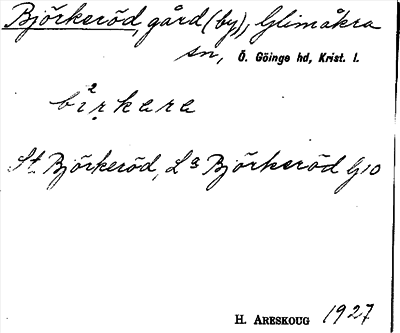 Björkeröd, gård (by), Glimåkra
sn, Ö. Göinge hd, Krist. l.
bi²ṛkara
St. Björkeröd, L:a Björkeröd G10
H. ARESKOUG 1927